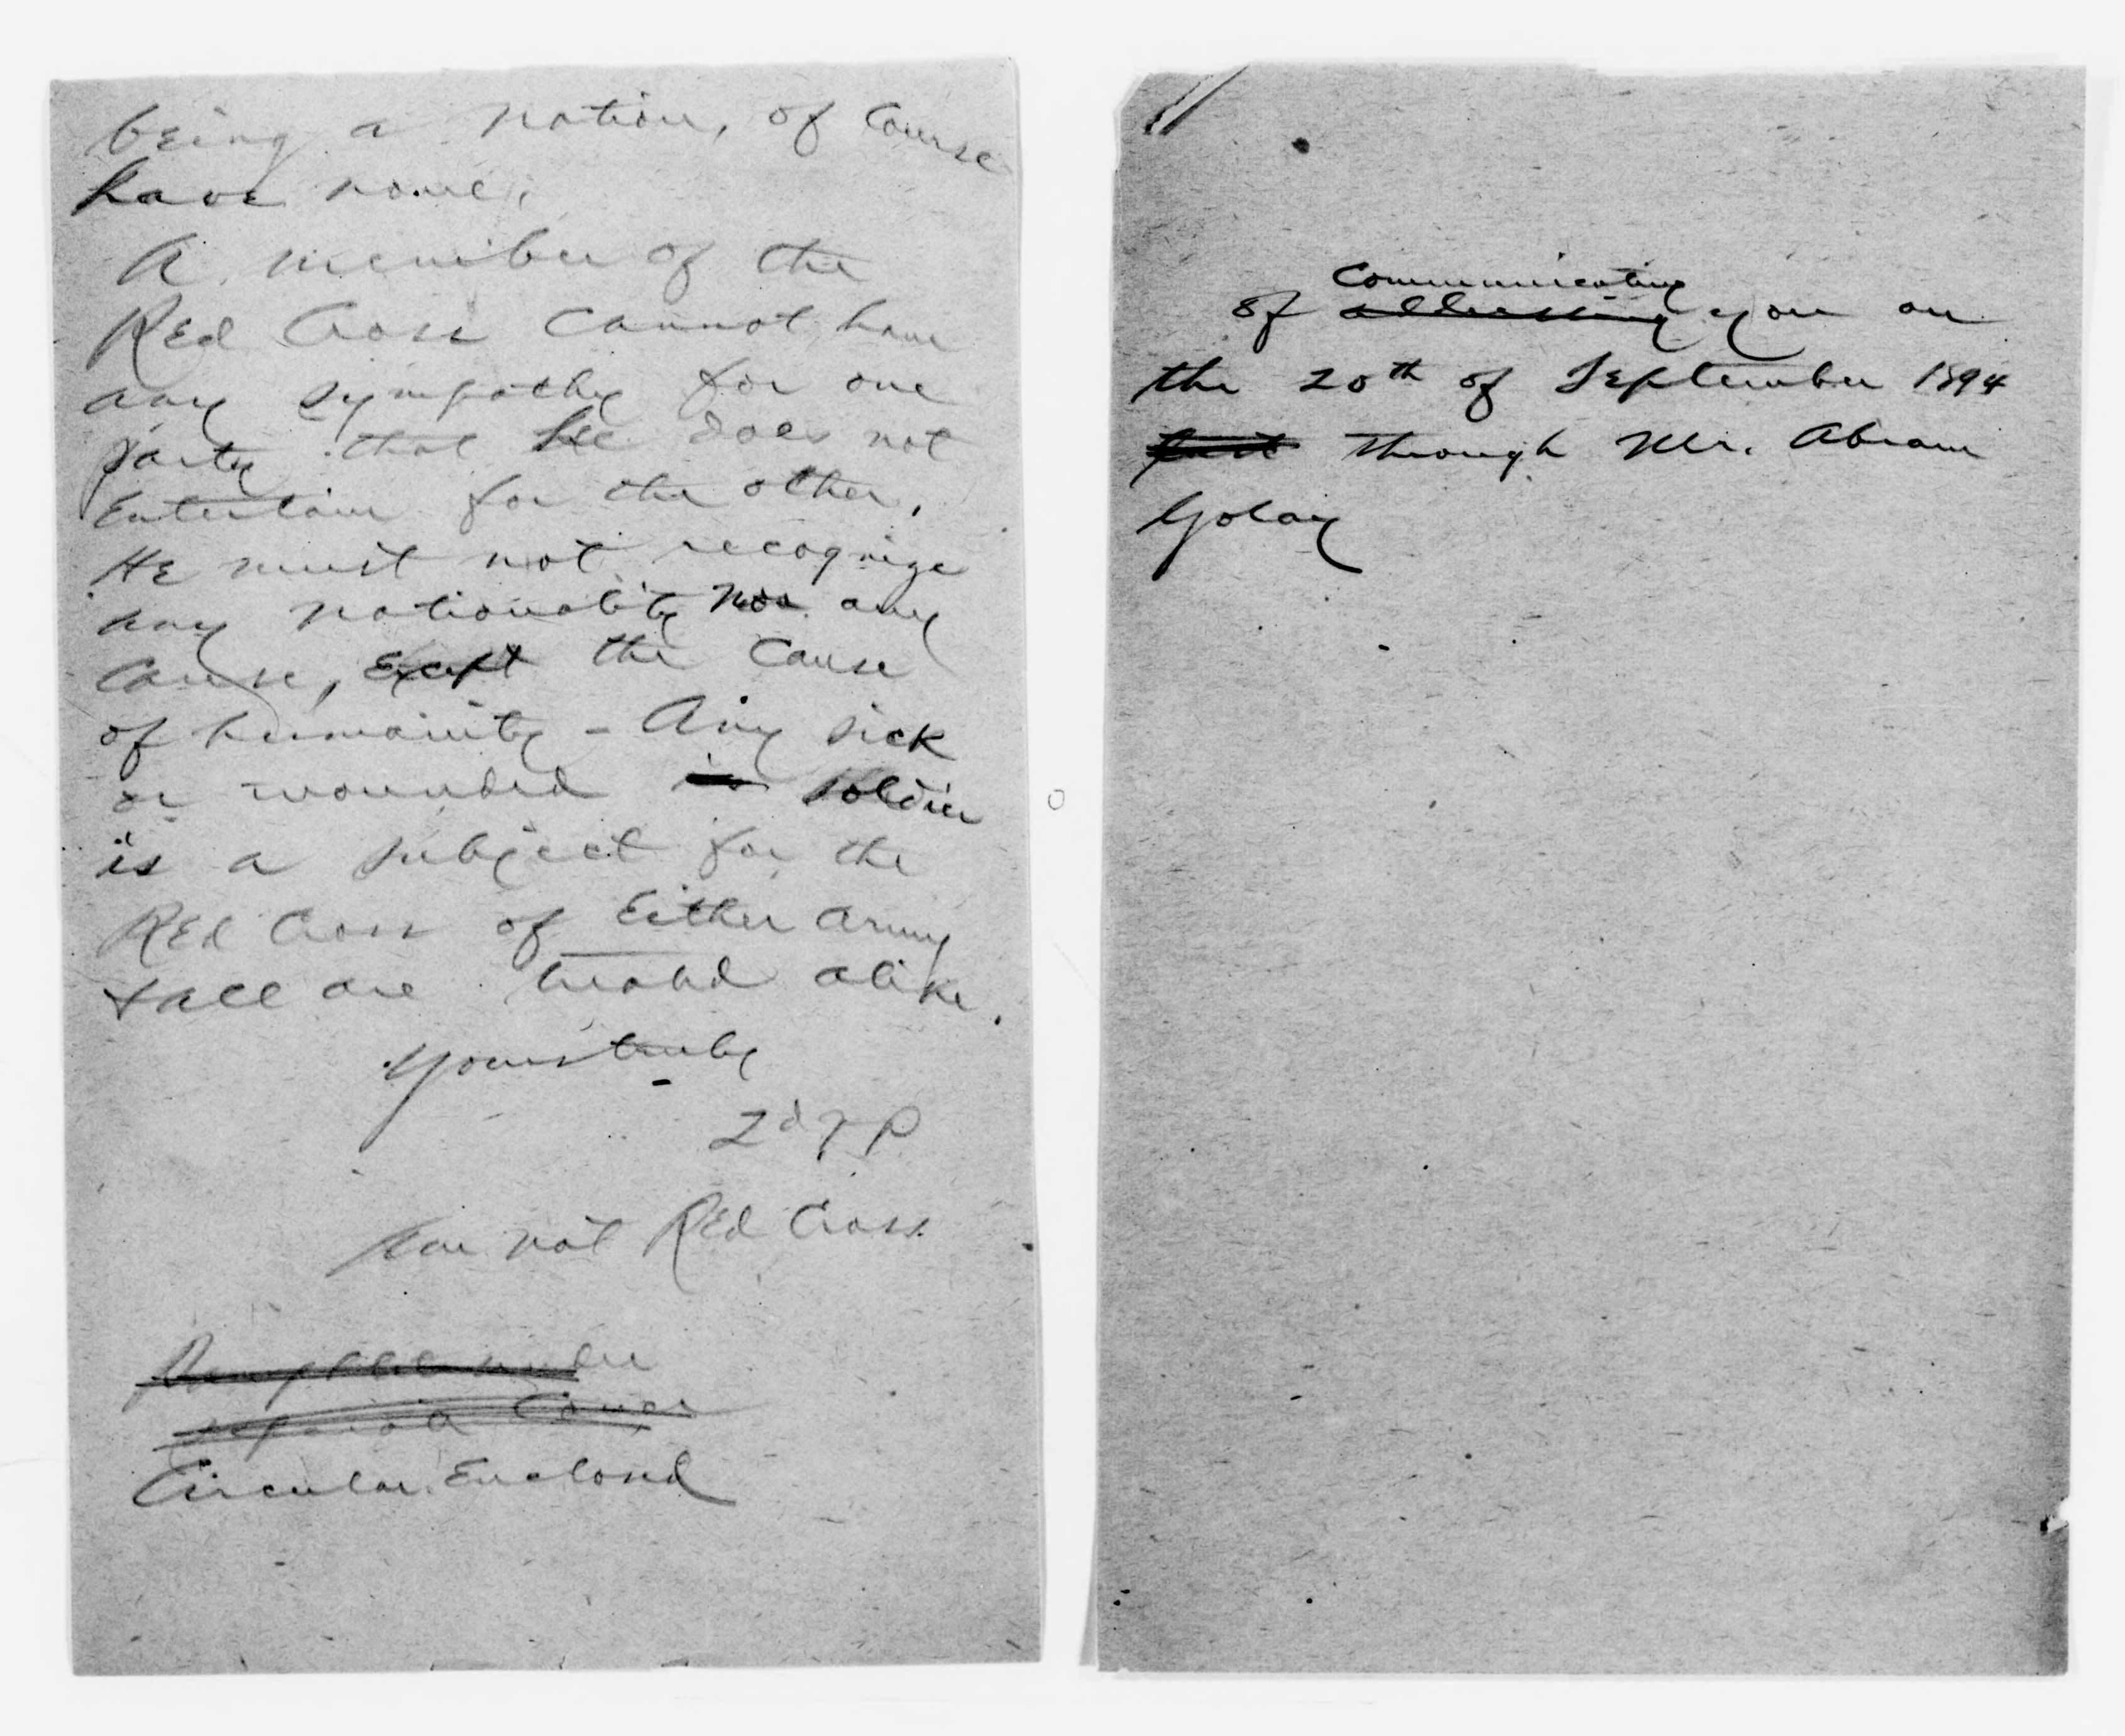 being a nation, of Course
have none.
A member of the
Red Cross cannot have
any sympathy for one
party that he does not
Entertain for the other.
He must not recognize
any nationality nor any
Cause, Except the Cause
of humanity - Any sick
or wounded is soldier
is a subject for the
Red Cross of Either army
& all are treated alike.
Yours truly
2d V P
Am not Red Cross
Pamphlet under
separate Cover
Circular Enclosed
Communicating
of addressing you on
the 20th of September 1894
through Mr. Abram
Golay